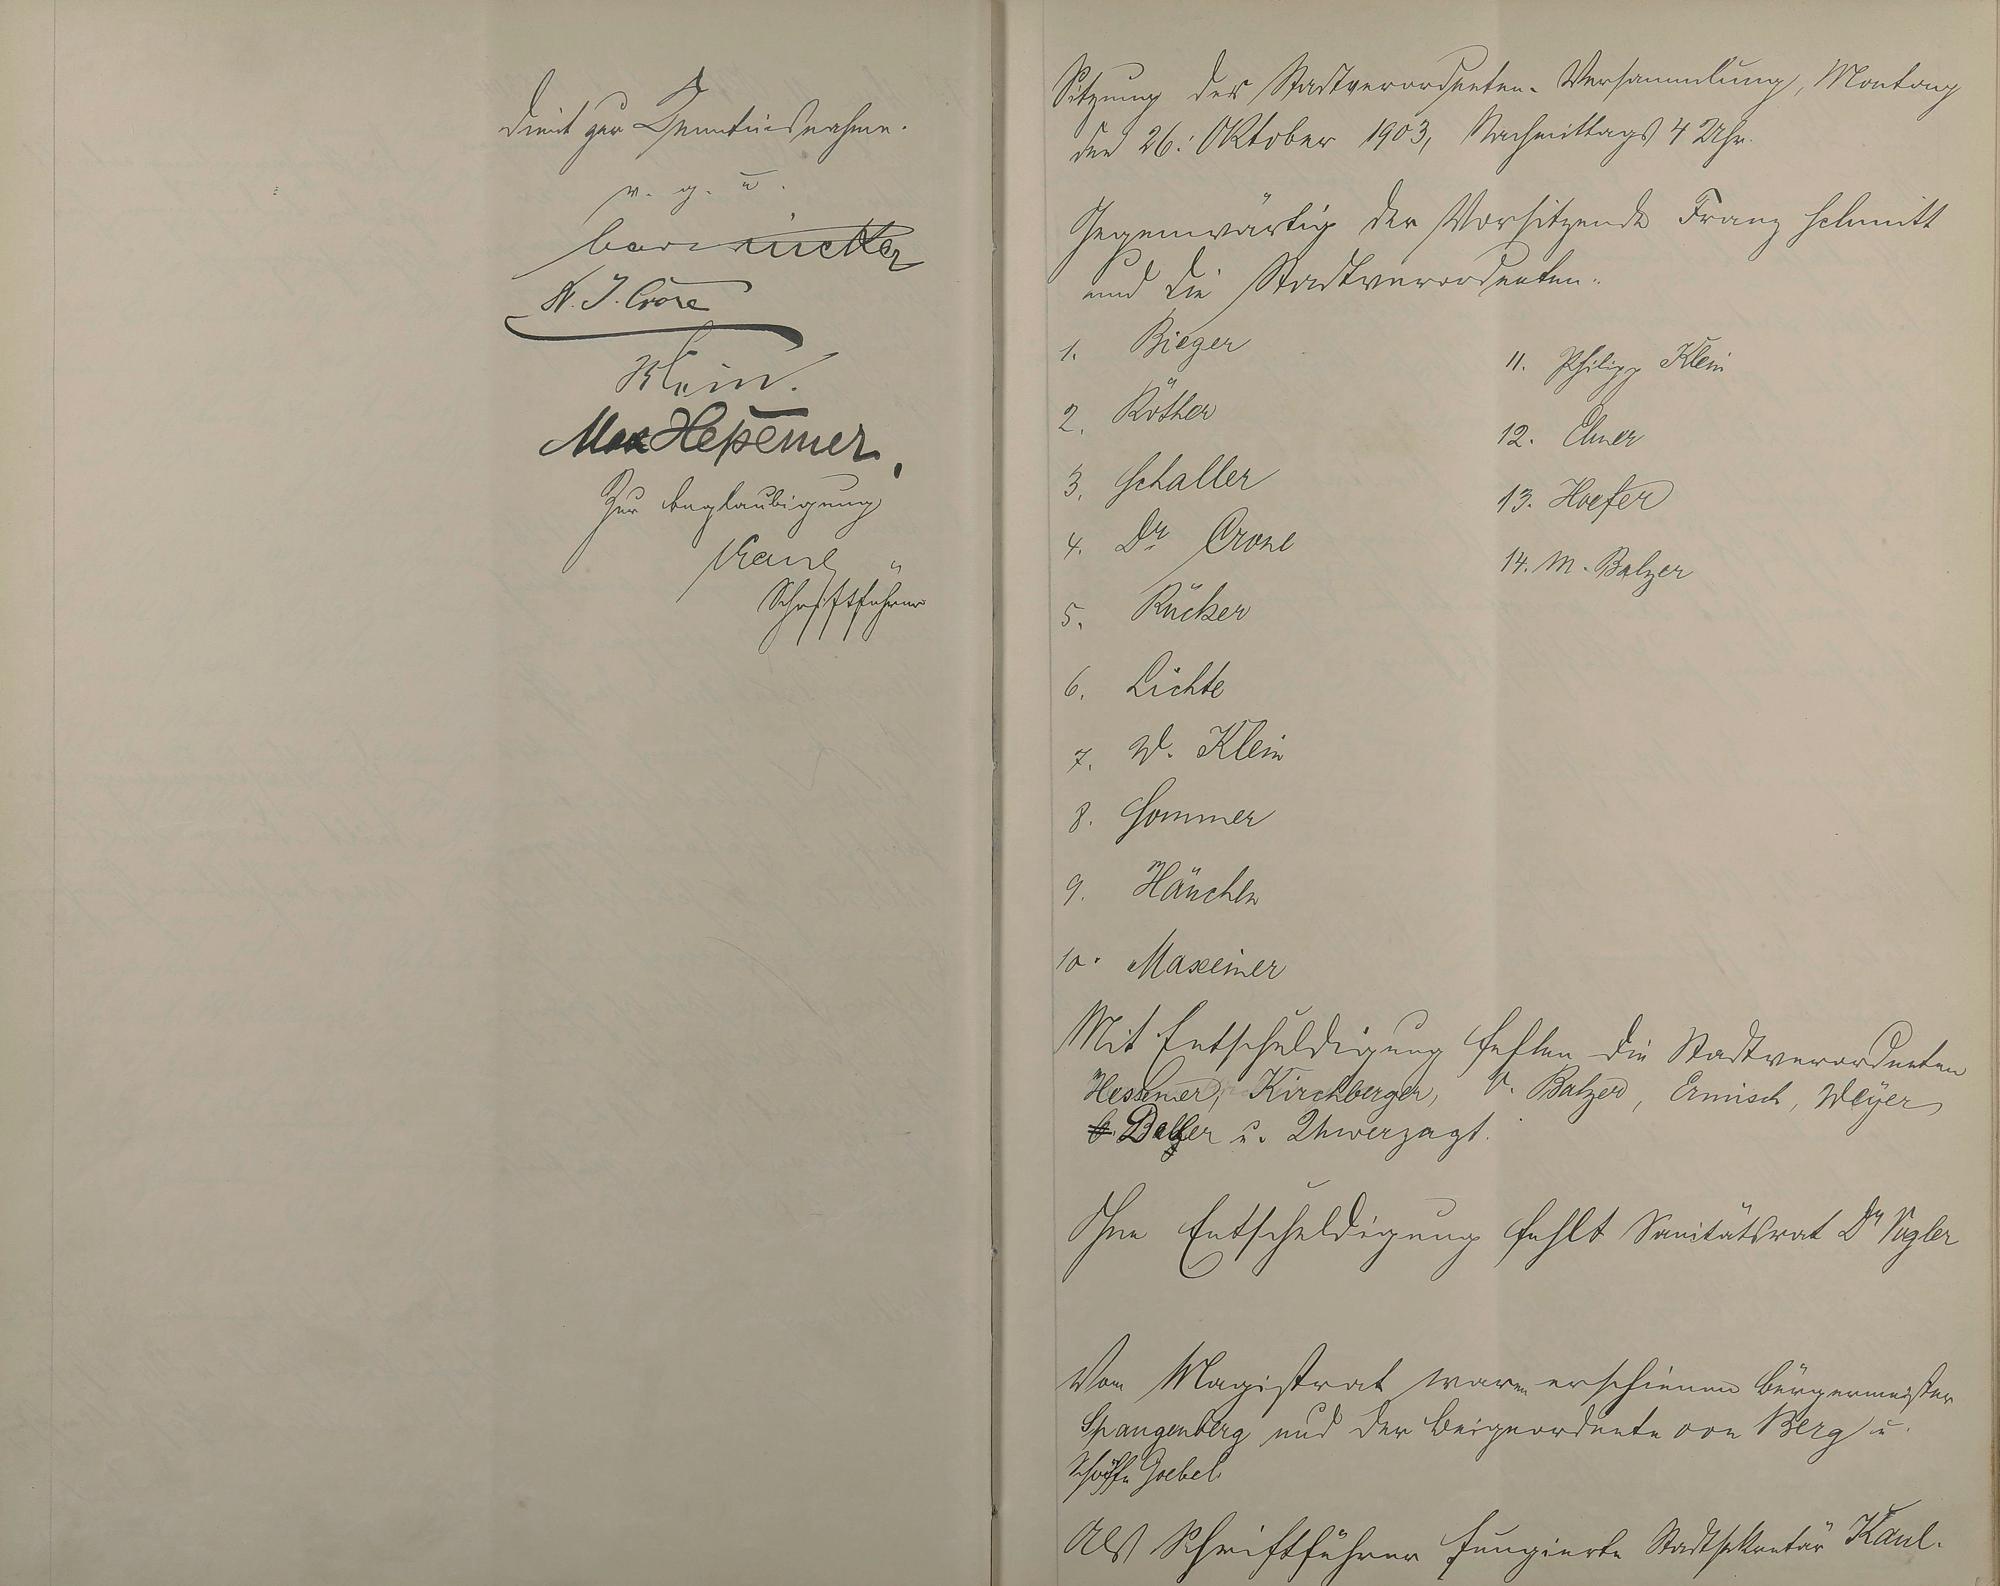 dient zur Kenntnisnahme.
v. g. u.
N. J. Crone
Klein.
Max Heßemer,
Zur Beglaubigung
Kaul
Schriftführer
Sitzung der Stadtverordneten-Versammlung, Montag
den 26. Oktober 1903, Nachmittags 4 Uhr.
Gegenwärtig der Vorsitzende Franz Schmitt
und die Stadtverordneten:
1. Bieger
2. Köther
3. Schaller
4. Dr Crone
5. Rücker
6. Lichte
7. W. Klein
8. Sommer
9. Hänchen
10. Maxeiner
11. Philipp Klein
12. Elmer
13. Hoefer
14. M. Balzer
Mit Entschuldigung fehlen die Stadtverordneten
Hessemer, Kirchberger, Balzer, Ermisch, Weyer
u. Unverzagt.
Ohne Entschuldigung fehlt Sanitätsrat Dr Vogler
Vom Magistrat waren erschienen Bürgermeister
Spangenberg und der Beigeordnete von Berg u.
Schöffe Goebel.
Als Schriftführer fungierte Stadtsekretär Kaul.